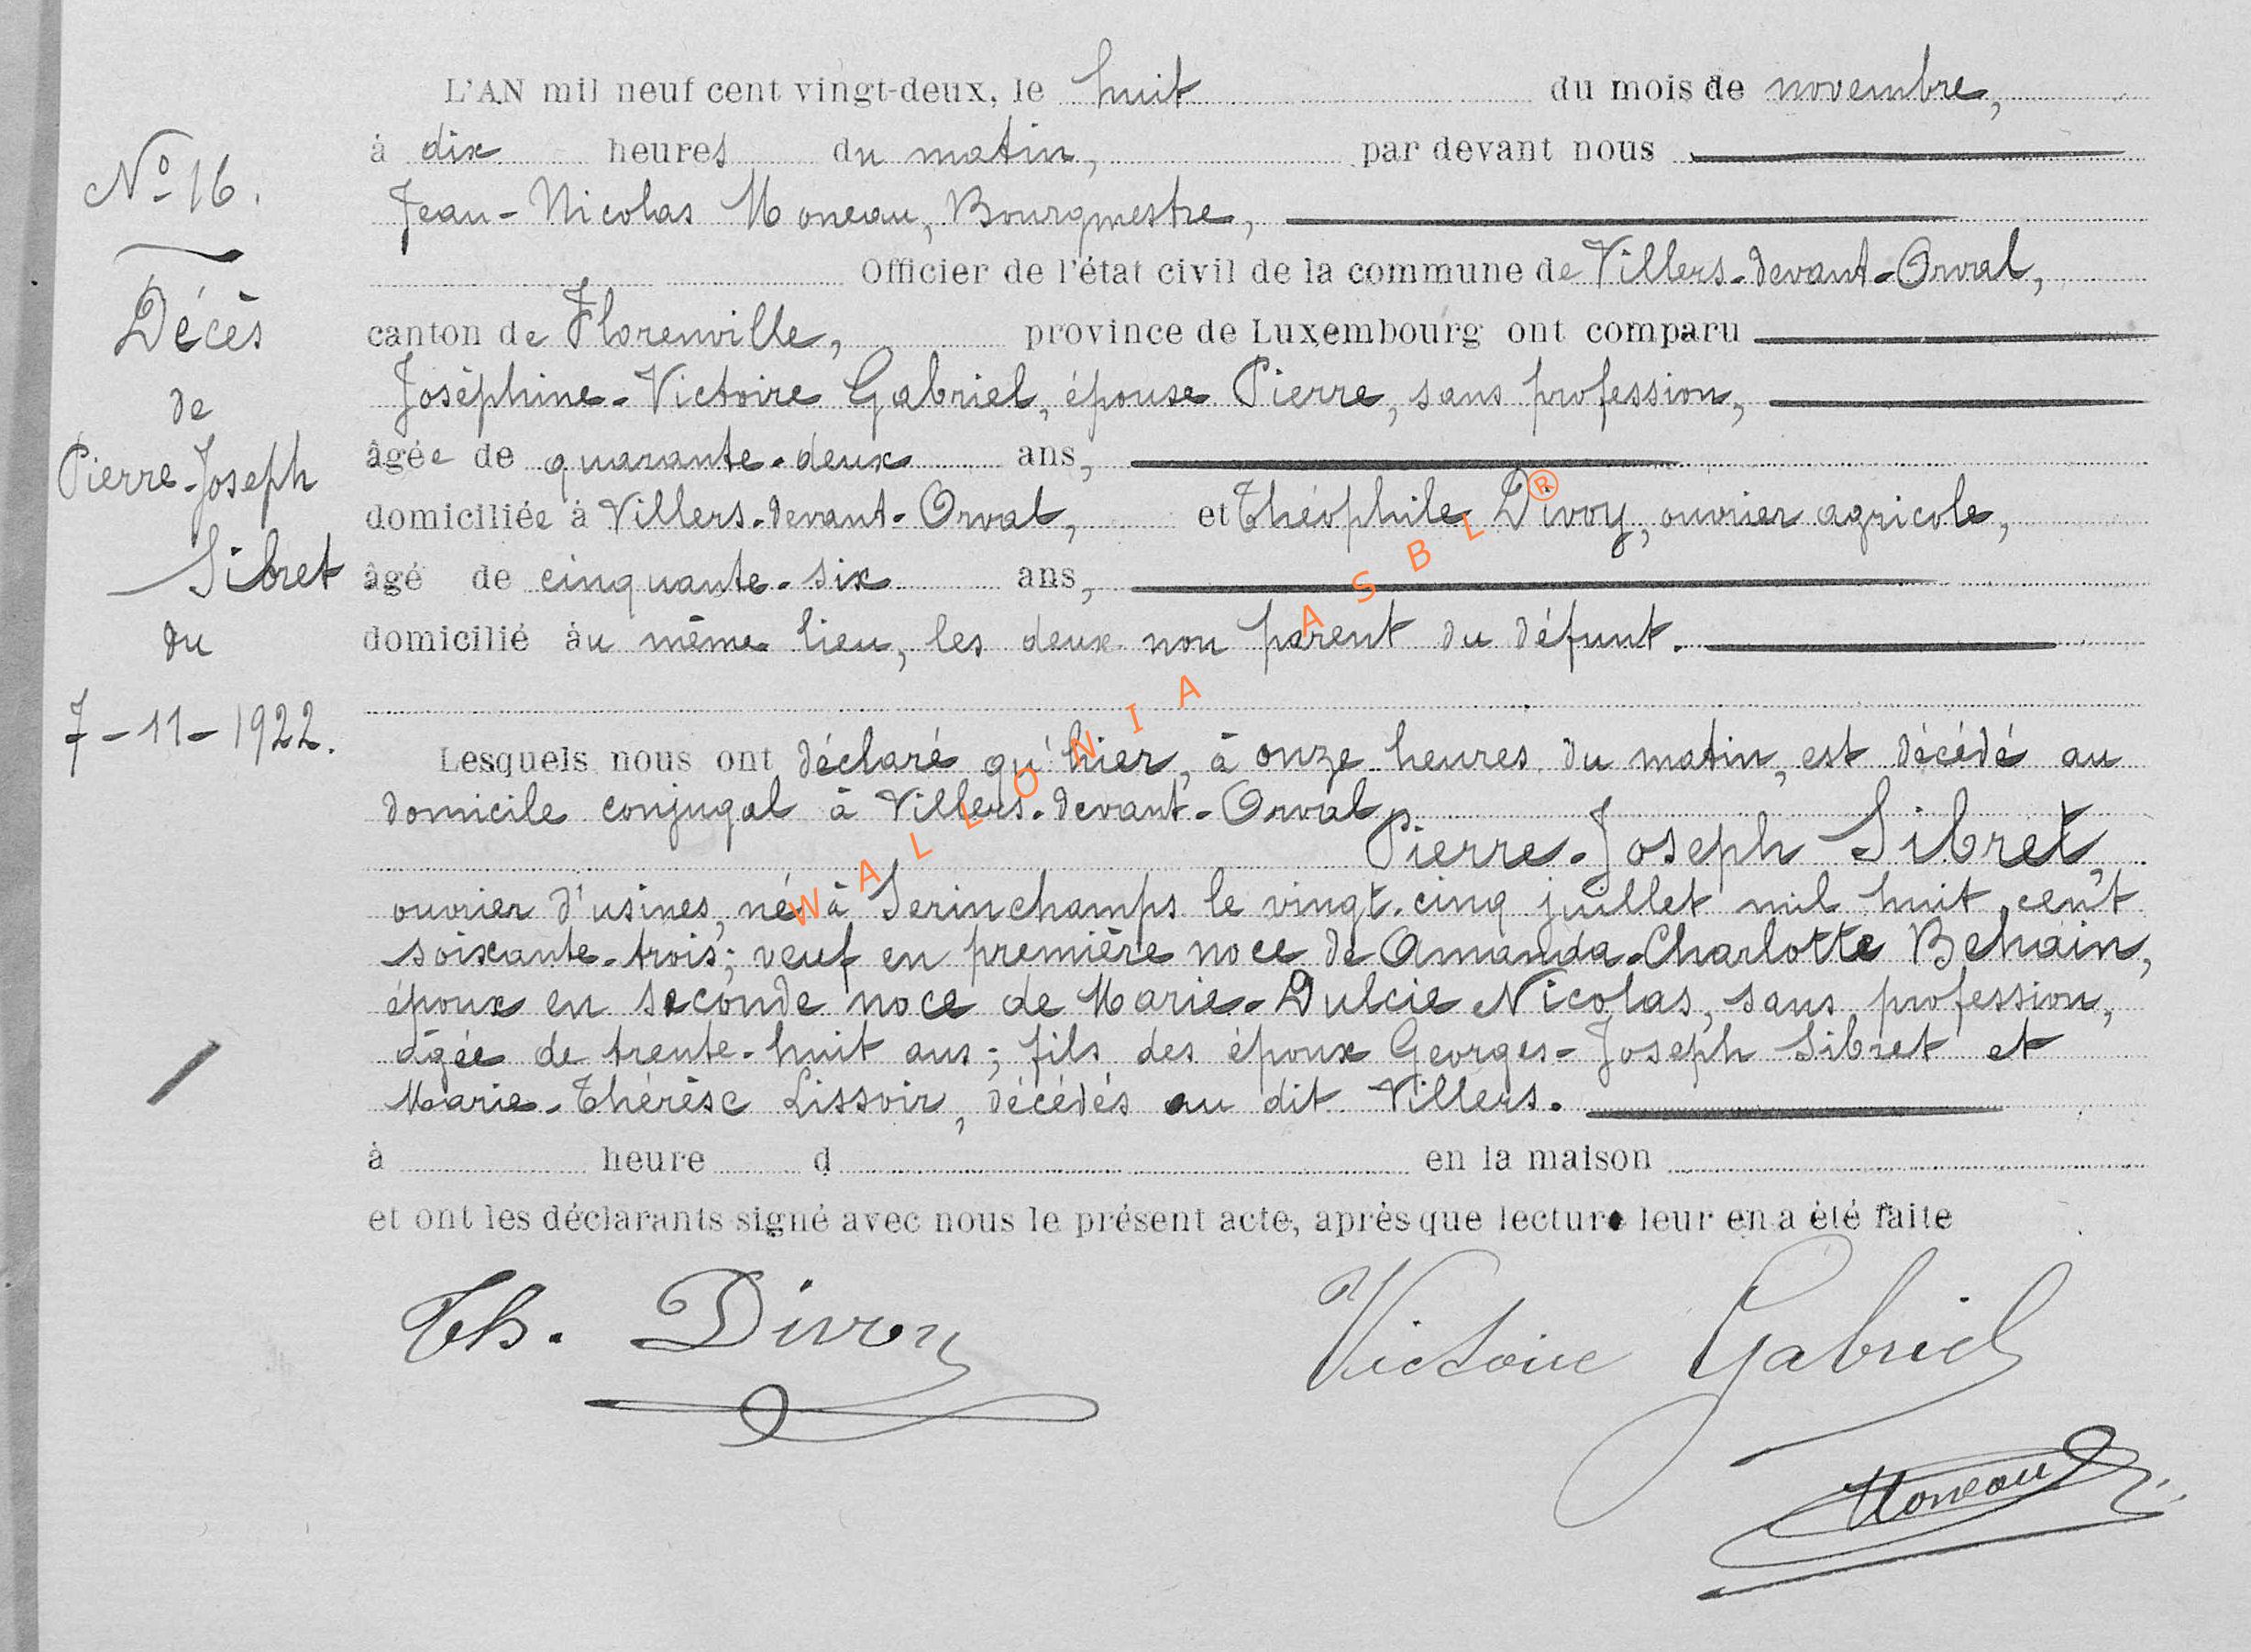 L'AN mil neuf cent vingt-deux, le huit du mois de novembre,
à dix heures du matin, par devant nous
Jean-Nicolas Moneau, Bourgmestre,
Officier de l'état civil de la commune de Villers-devant-Orval,
canton de Florenville, province de Luxembourg ont comparu
Joséphine-Victoire Gabriel, épouse Pierre, sans profession,
âgée de quarante-deux ans,
domiciliée à Villers-devant-Orval, et Théophile Divoy, ouvrier agricole,
âgé de cinquante-six ans,
domicilié au même lieu, les deux non parent du défunt.
Lesquels nous ont déclaré qu'hier, à onze heures du matin, est décédé au
domicile conjugal à Villers-devant-Orval
Pierre-Joseph Sibret,
ouvrier d'usines, né à Serinchamps le vingt-cinq juillet mil huit cent
soixante-trois; veuf en première noce de Amanda-Charlotte Behain,
époux en seconde noce de Marie-Dulcie Nicolas, sans profession,
âgée de trente-huit ans; fils des époux Georges-Joseph Sibret et
Marie-Thérèse Lissoir, décédés au dit Villers.
à heure d en la maison
et ont les déclarants signé avec nous le présent acte, après que lecture leur en a été faite
Th. Divoy
Victoire Gabriel
Moneau
No 16.
Décès
de
Pierre-Joseph
Sibret
du
7-11-1922.
WALLONIA ASBL ®